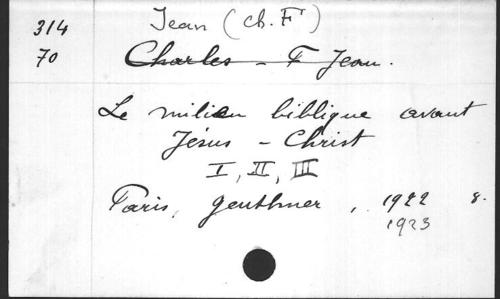 314 Jean (Ch. F)
70 Charles - F Jean.
Le milieu biblique avant
Jésus - Christ
I, II, III
Paris, Geuthner, 1922 8.
1923